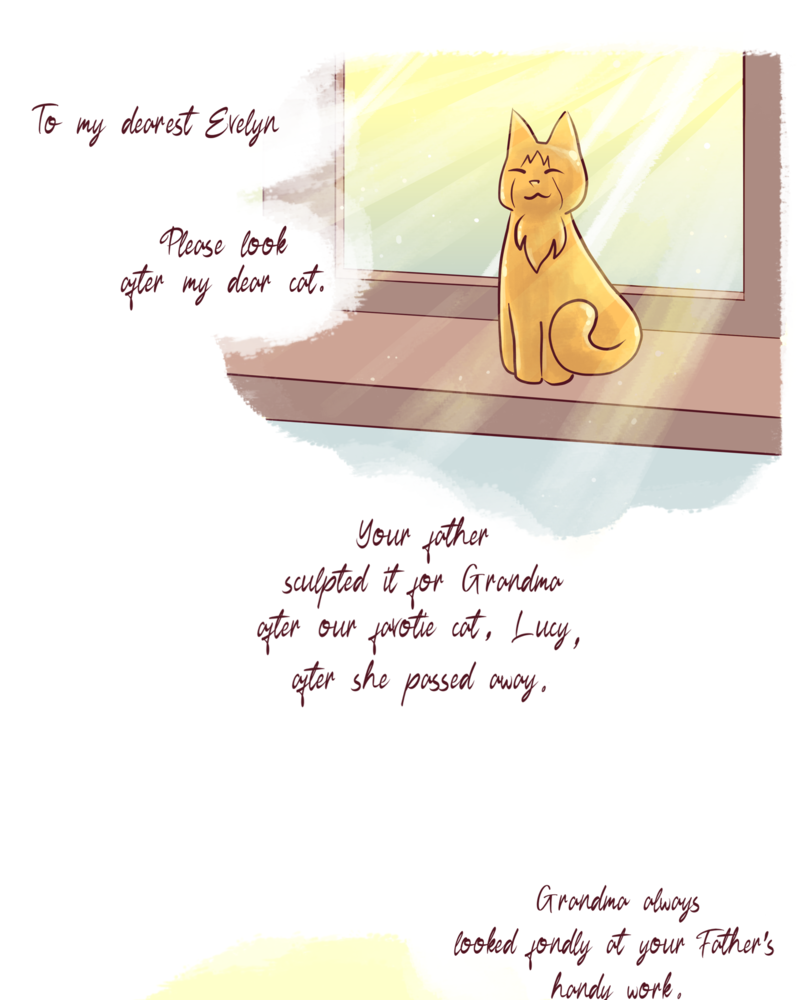 To my dearest Evelyn
Please look
after my dear cat.
Your father
sculpted it for Grandma
after our favotie cat, Lucy,
after she passed away.
Grandma always
looked fondly at your Father's
handy work.